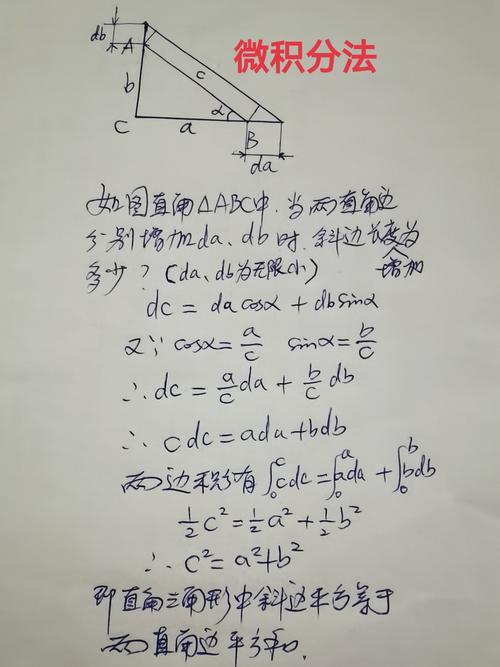 微积分法
db
A
b
c
α
C
a
B
da
如图直角△ABC中,当两直角边
分别增加da、db时,斜边长度为
增加
多少?(da、db为无限小)
dc = da cosα + db sinα
又∵ cosα = a/c sinα = b/c
∴ dc = a/c da + b/c db
∴ c dc = a da + b db
两边积分有 ∫₀ᶜ c dc = ∫₀ᵃ a da + ∫₀ᵇ b db
½c² = ½a² + ½b²
∴ c² = a² + b²
即直角三角形中斜边平方等于
两直角边平方和.